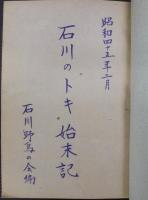 昭和四十五年三月
石川のトキ始末記
石川野鳥の会編